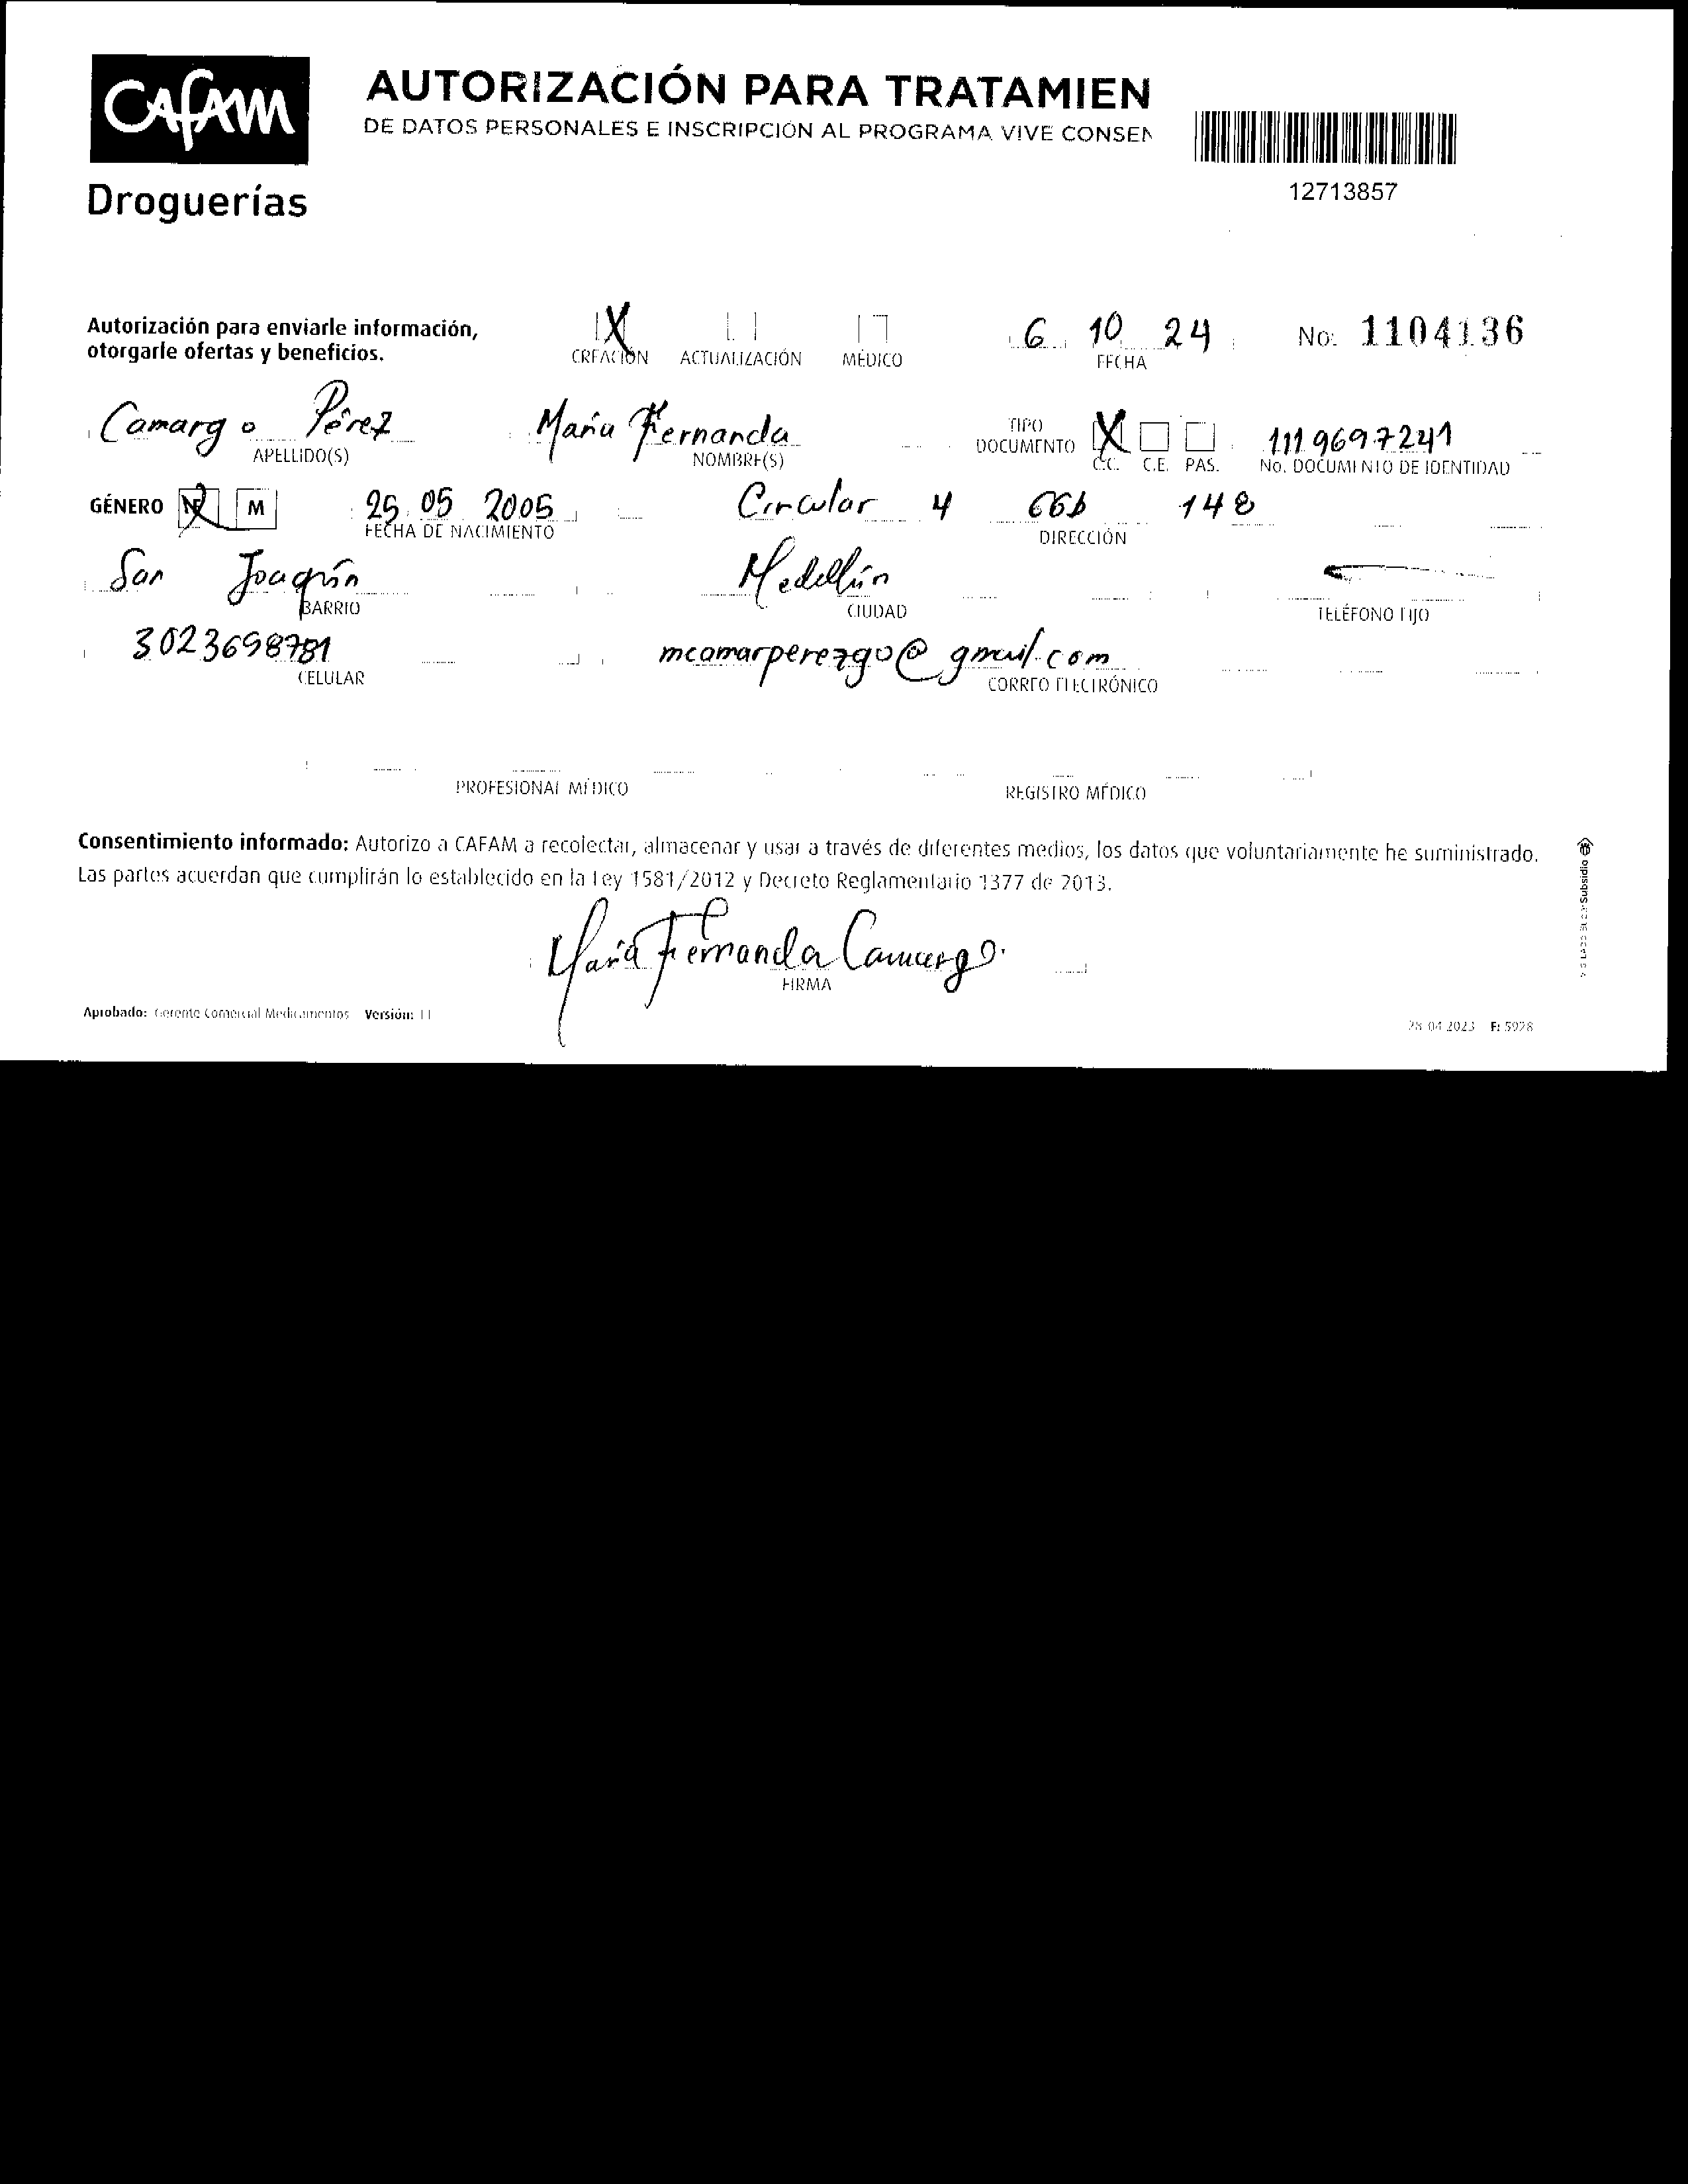 CAFAM
Droguerías
AUTORIZACIÓN PARA TRATAMIEN
DE DATOS PERSONALES E INSCRIPCIÓN AL PROGRAMA VIVE CONSEN
12713857
Autorización para enviarle información,
otorgarle ofertas y beneficios.
X
CREACIÓN ACTUALIZACIÓN MÉDICO
6 10 24
FECHA
No. 1104136
Camargo Pérez
APELLIDO(S)
María Fernanda
NOMBRE(S)
TIPO
DOCUMENTO
X
C.C. C.E. PAS.
1119697241
No. DOCUMENTO DE IDENTIDAD
GÉNERO F X M
25 05 2005
FECHA DE NACIMIENTO
Circular 4 66b 148
DIRECCIÓN
San Joaquín
BARRIO
Medellín
CIUDAD
TELÉFONO FIJO
3023698781
CELULAR
mcamarperezgo@gmail.com
CORREO ELECTRÓNICO
PROFESIONAL MÉDICO
REGISTRO MÉDICO
Consentimiento informado: Autorizo a CAFAM a recolectar, almacenar y usar a través de diferentes medios, los datos que voluntariamente he suministrado.
Las partes acuerdan que cumplirán lo establecido en la Ley 1581/2012 y Decreto Reglamentario 1377 de 2013.
María Fernanda Camargo
FIRMA
Aprobado: Gerente Comercial Medicamentos Versión: 11
28 04 2023 F: 5928
Subsidio